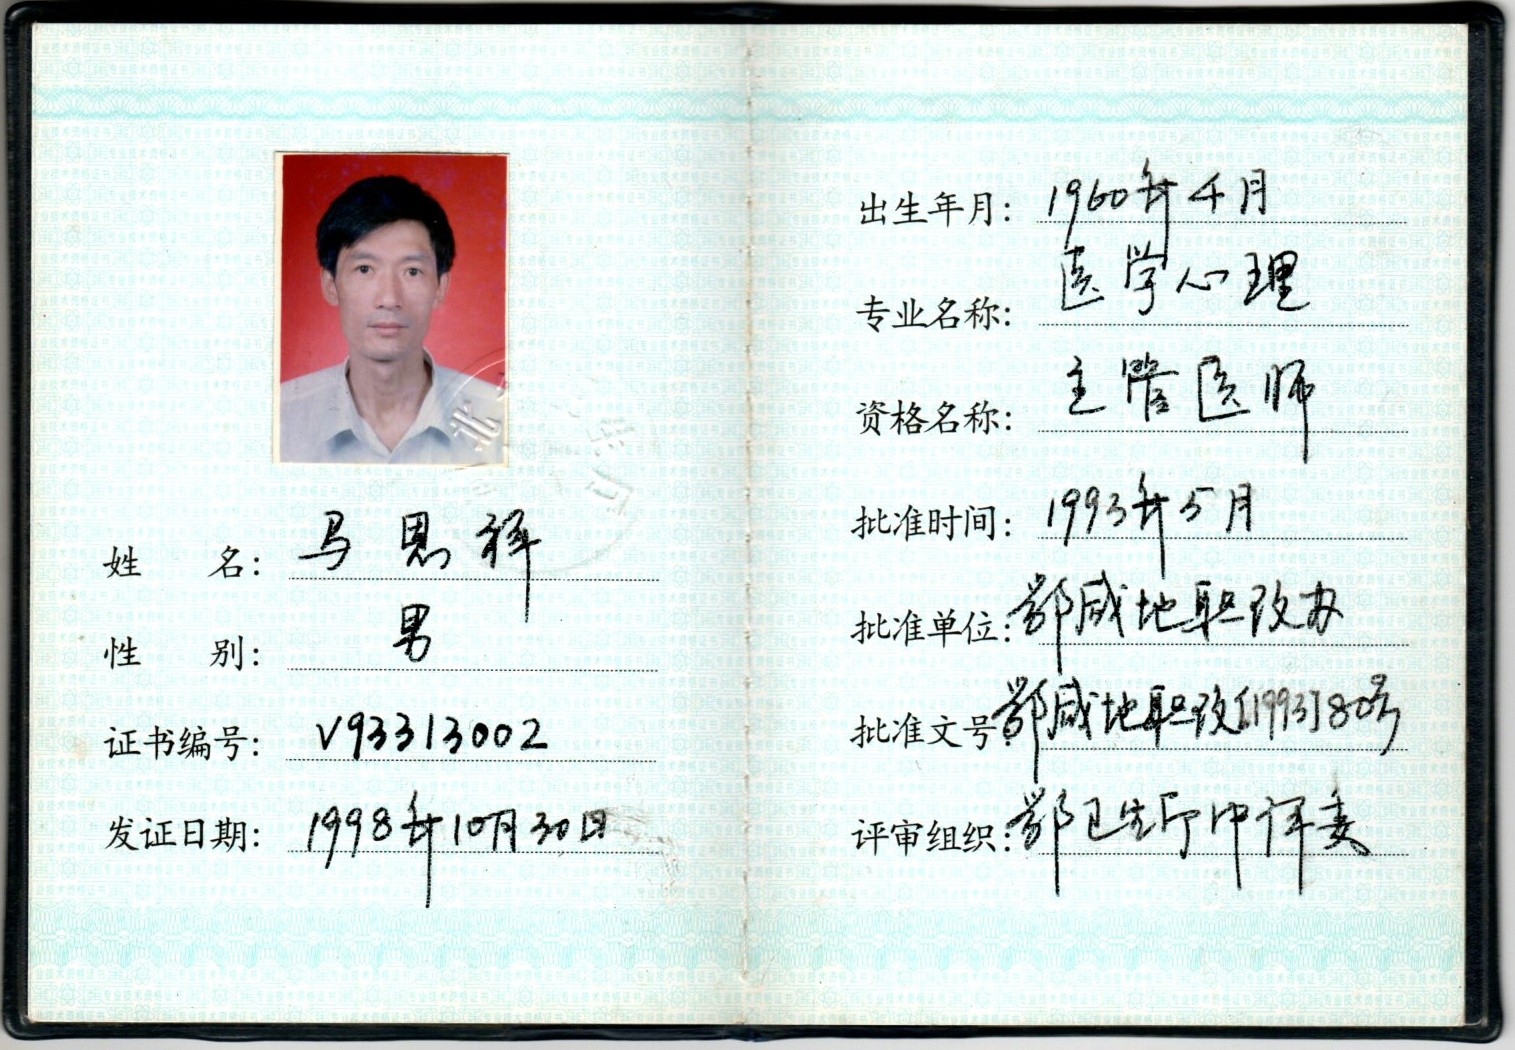 姓 名: 马恩祥
性 别: 男
证书编号: V93313002
发证日期: 1998年10月30日
出生年月: 1960年4月
专业名称: 医学心理
资格名称: 主管医师
批准时间: 1993年5月
批准单位: 鄂咸地职改办
批准文号: 鄂咸地职改[1993]80号
评审组织: 鄂卫生厅中评委